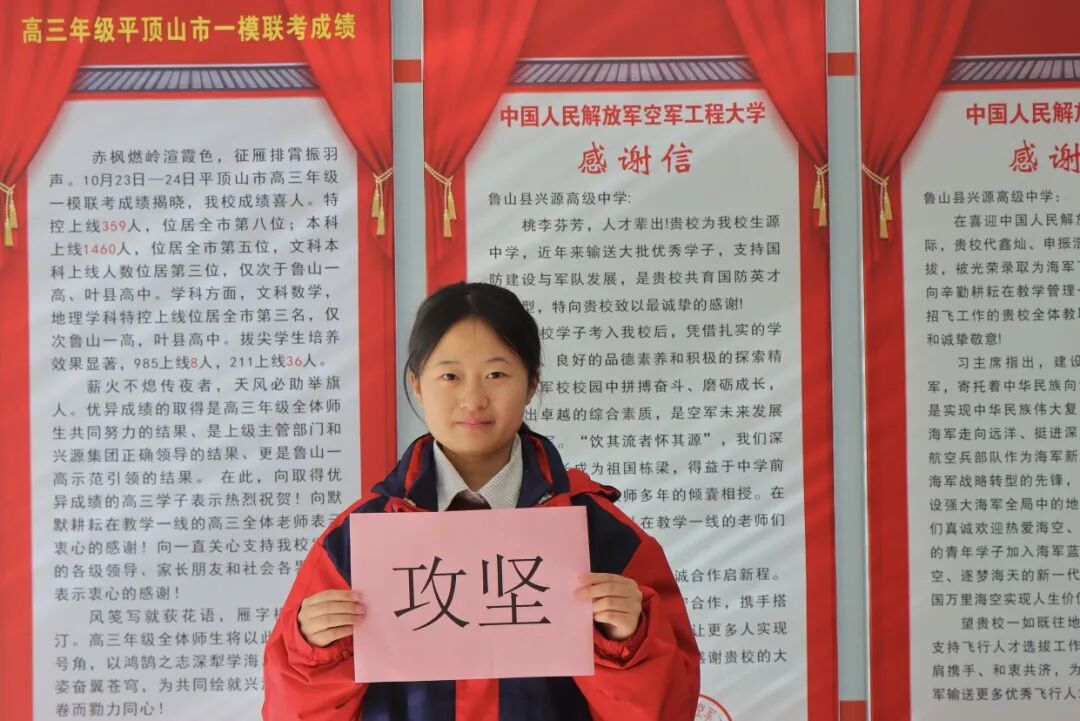 高三年级平顶山市一模联考成绩
赤枫燃岭渲霞色，征雁排霄振羽
声。10月23日—24日平顶山市高三年级
一模联考成绩揭晓，我校成绩喜人。特
控上线359人，位居全市第八位；本科
上线1460人，位居全市第五位，文科本
科上线人数位居第三位，仅次于鲁山一
高、叶县高中。学科方面，文科数学，
地理学科特控上线位居全市第三名，仅
次鲁山一高，叶县高中。拔尖学生培养
效果显著，985上线8人，211上线36人。
薪火不熄传夜者，天风必助举旗
人。优异成绩的取得是高三年级全体师
生共同努力的结果、是上级主管部门和
兴源集团正确领导的结果、更是鲁山一
高示范引领的结果。 在此，向取得优
异成绩的高三学子表示热烈祝贺！向默
默耕耘在教学一线的高三全体老师表示
衷心的感谢！向一直关心支持我校
的各级领导、家长朋友和社会各
表示衷心的感谢！
风笺写就荻花语，雁字
汀。高三年级全体师生将以此
号角，以鸿鹄之志深犁学海
姿奋翼苍穹，为共同绘就兴
卷而勠力同心！
中国人民解放军空军工程大学
感谢信
鲁山县兴源高级中学：
桃李芬芳，人才辈出!贵校为我校生源
中学，近年来输送大批优秀学子，支持国
防建设与军队发展，是贵校共育国防英才
型，特向贵校致以最诚挚的感谢!
校学子考入我校后，凭借扎实的学
、良好的品德素养和积极的探索精
军校校园中拼搏奋斗、磨砺成长，
出卓越的综合素质，是空军未来发展
。“饮其流者怀其源”，我们深
长成为祖国栋梁，得益于中学前
师多年的倾囊相授。在
在教学一线的老师们
诚合作启新程。
合作，携手搭
让更多人实现
感谢贵校的大
中国人民解放军
感谢
鲁山县兴源高级中学：
在喜迎中国人民解放
际，贵校代鑫灿、申振
拔，被光荣录取为海军
向辛勤耕耘在教学管理
招飞工作的贵校全体教
和诚挚敬意！
习主席指出，建设
军，寄托着中华民族向
是实现中华民族伟大复
海军走向远洋、挺进深
航空兵部队作为海军新
海军战略转型的先锋，
设强大海军全局中的地
们真诚欢迎热爱海空、
的青年学子加入海军蓝
空、逐梦海天的新一代
国万里海空实现人生价
望贵校一如既往地
支持飞行人才选拔工作
肩携手、和衷共济，为
军输送更多优秀飞行人
攻坚